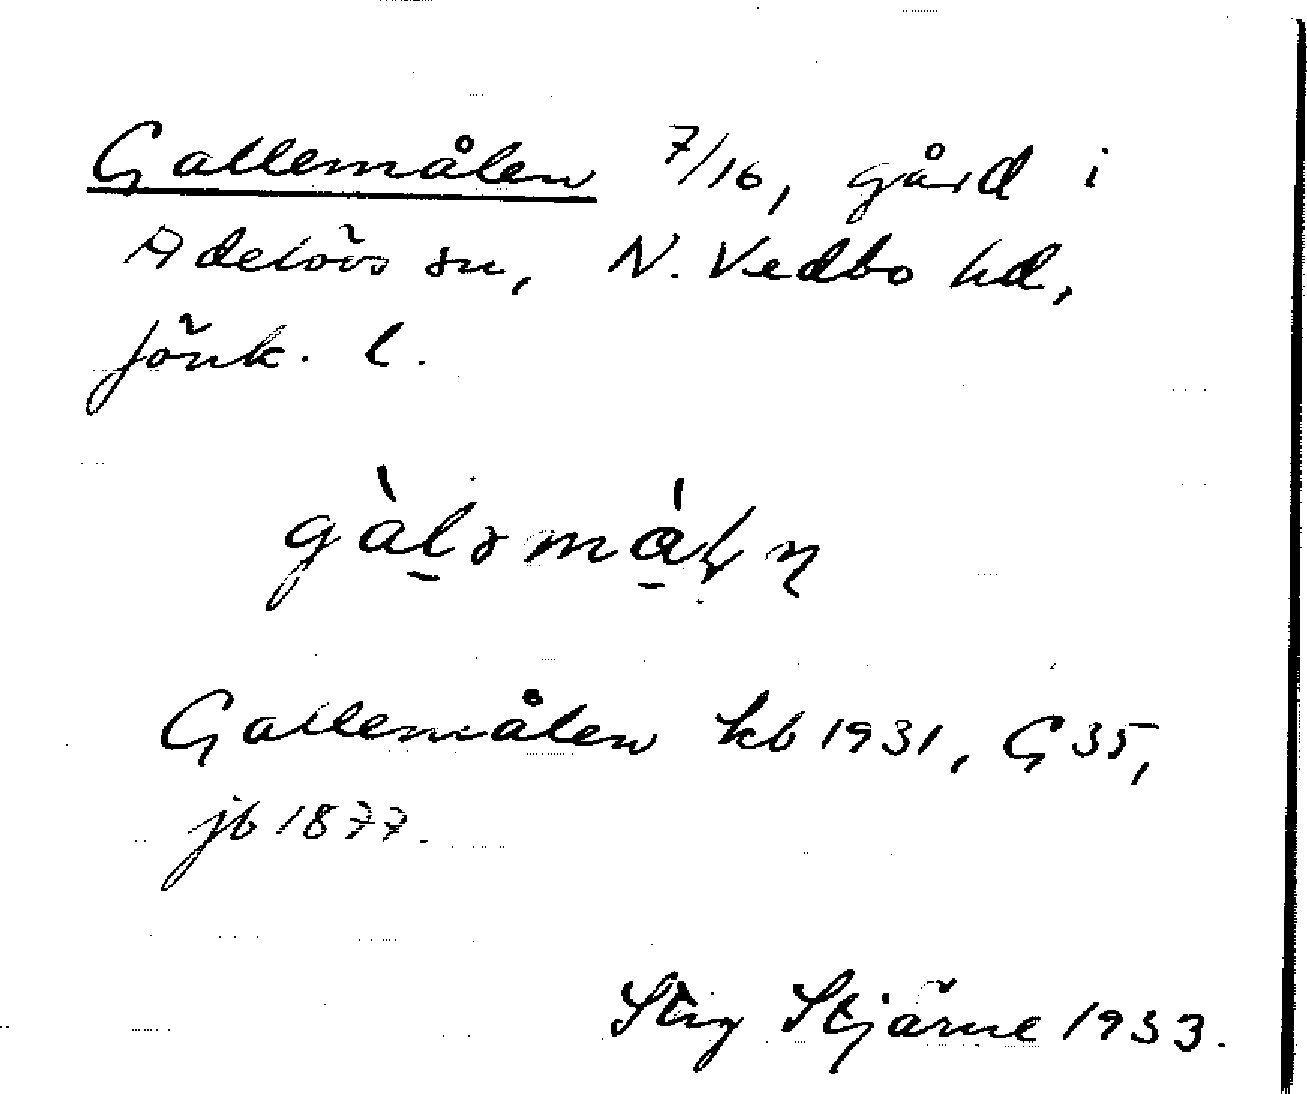 Gallemålen 7/16, gård i
Adelövs sn, N. Vedbo hd,
Jönk. l.
gàl̠əmá̠ɭn̥
Gallemålen kb 1931, G 35,
jb 1877.
Stig Stjärne 1933.